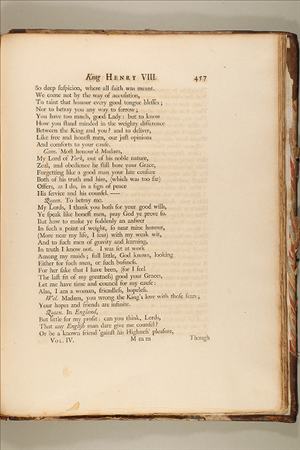 King HENRY VIII. 457
So deep suspicion, where all faith was meant.
We come not by the way of accusation,
To taint that honour every good tongue blesses;
Nor to betray you any way to sorrow;
You have too much, good Lady: but to know
How you stand minded in the weighty difference
Between the King and you? and to deliver,
Like free and honest men, our just opinions
And comforts to your cause.
Cam. Most honour'd Madam,
My Lord of York, out of his noble nature,
Zeal, and obedience he still bore your Grace,
Forgetting like a good man your late censure
Both of his truth and him, (which was too far)
Offers, as I do, in a sign of peace
His service and his counsel. —
Queen. To betray me.
My Lords, I thank you both for your good wills,
Ye speak like honest men, pray God ye prove so.
But how to make ye suddenly an answer
In such a point of weight, so near mine honour,
(More near my life, I fear) with my weak wit,
And to such men of gravity and learning,
In truth I know not. I was set at work
Among my maids; full little, God knows, looking
Either for such men, or such business.
For her sake that I have been, (for I feel
The last fit of my greatness) good your Graces,
Let me have time and council for my cause:
Alas, I am a woman, friendless, hopeless.
Wol. Madam, you wrong the King's love with those fears;
Your hopes and friends are infinite.
Queen. In England,
But little for my profit: can you think, Lords,
That any English man dare give me counsel?
Or be a known friend 'gainst his Highness' pleasure,
VOL. IV. M m m Though